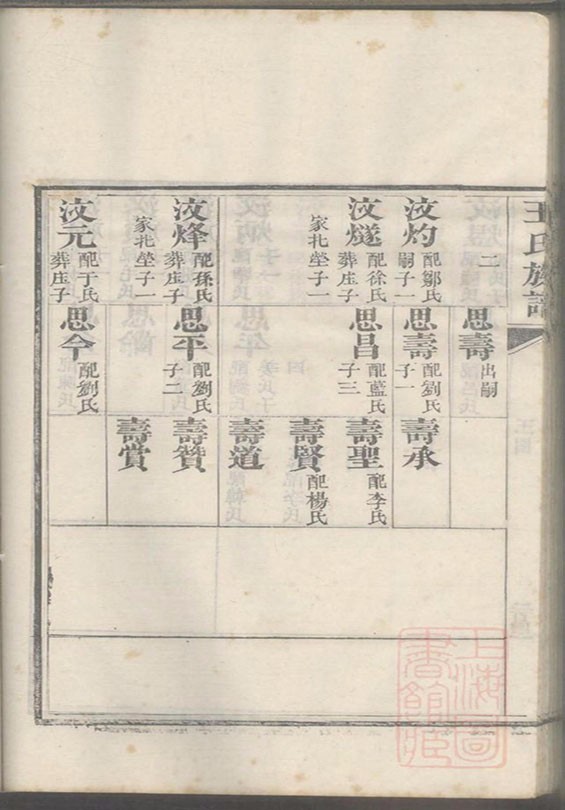 王氏族譜
二
思壽 出嗣
汶灼 配鄒氏
嗣子一
思壽 配劉氏
子一
壽承
汶燧 配徐氏
葬庄子
家北塋子一
思昌 配藍氏
子三
壽聖 配李氏
壽賢 配楊氏
壽道
汶烽 配孫氏
葬庄子
家北塋子一
思平 配劉氏
子二
壽贊
壽賞
汶元 配于氏
葬庄子
思今 配劉氏
上海圖書館藏